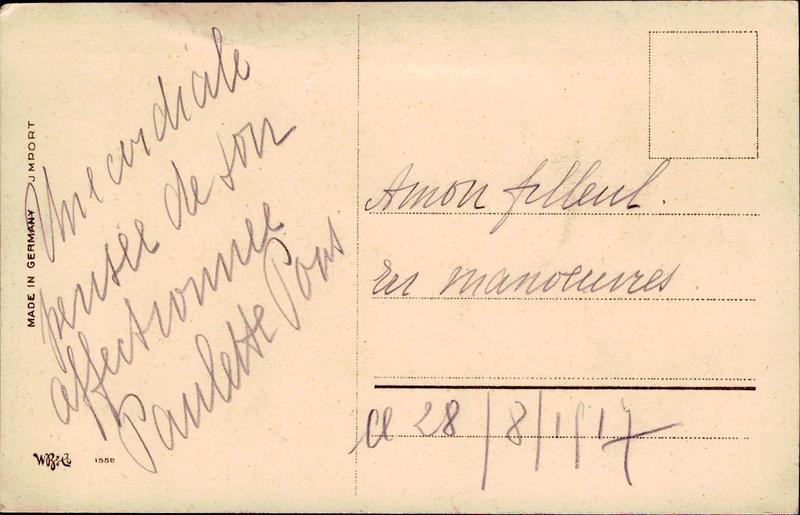 MADE IN GERMANY JMPORT
Une cordiale
pensée de son
affectionnée
Paulette Pons
A mon filleul.
En manoeuvres.
Le 28/8/1917
WB&Co
1558